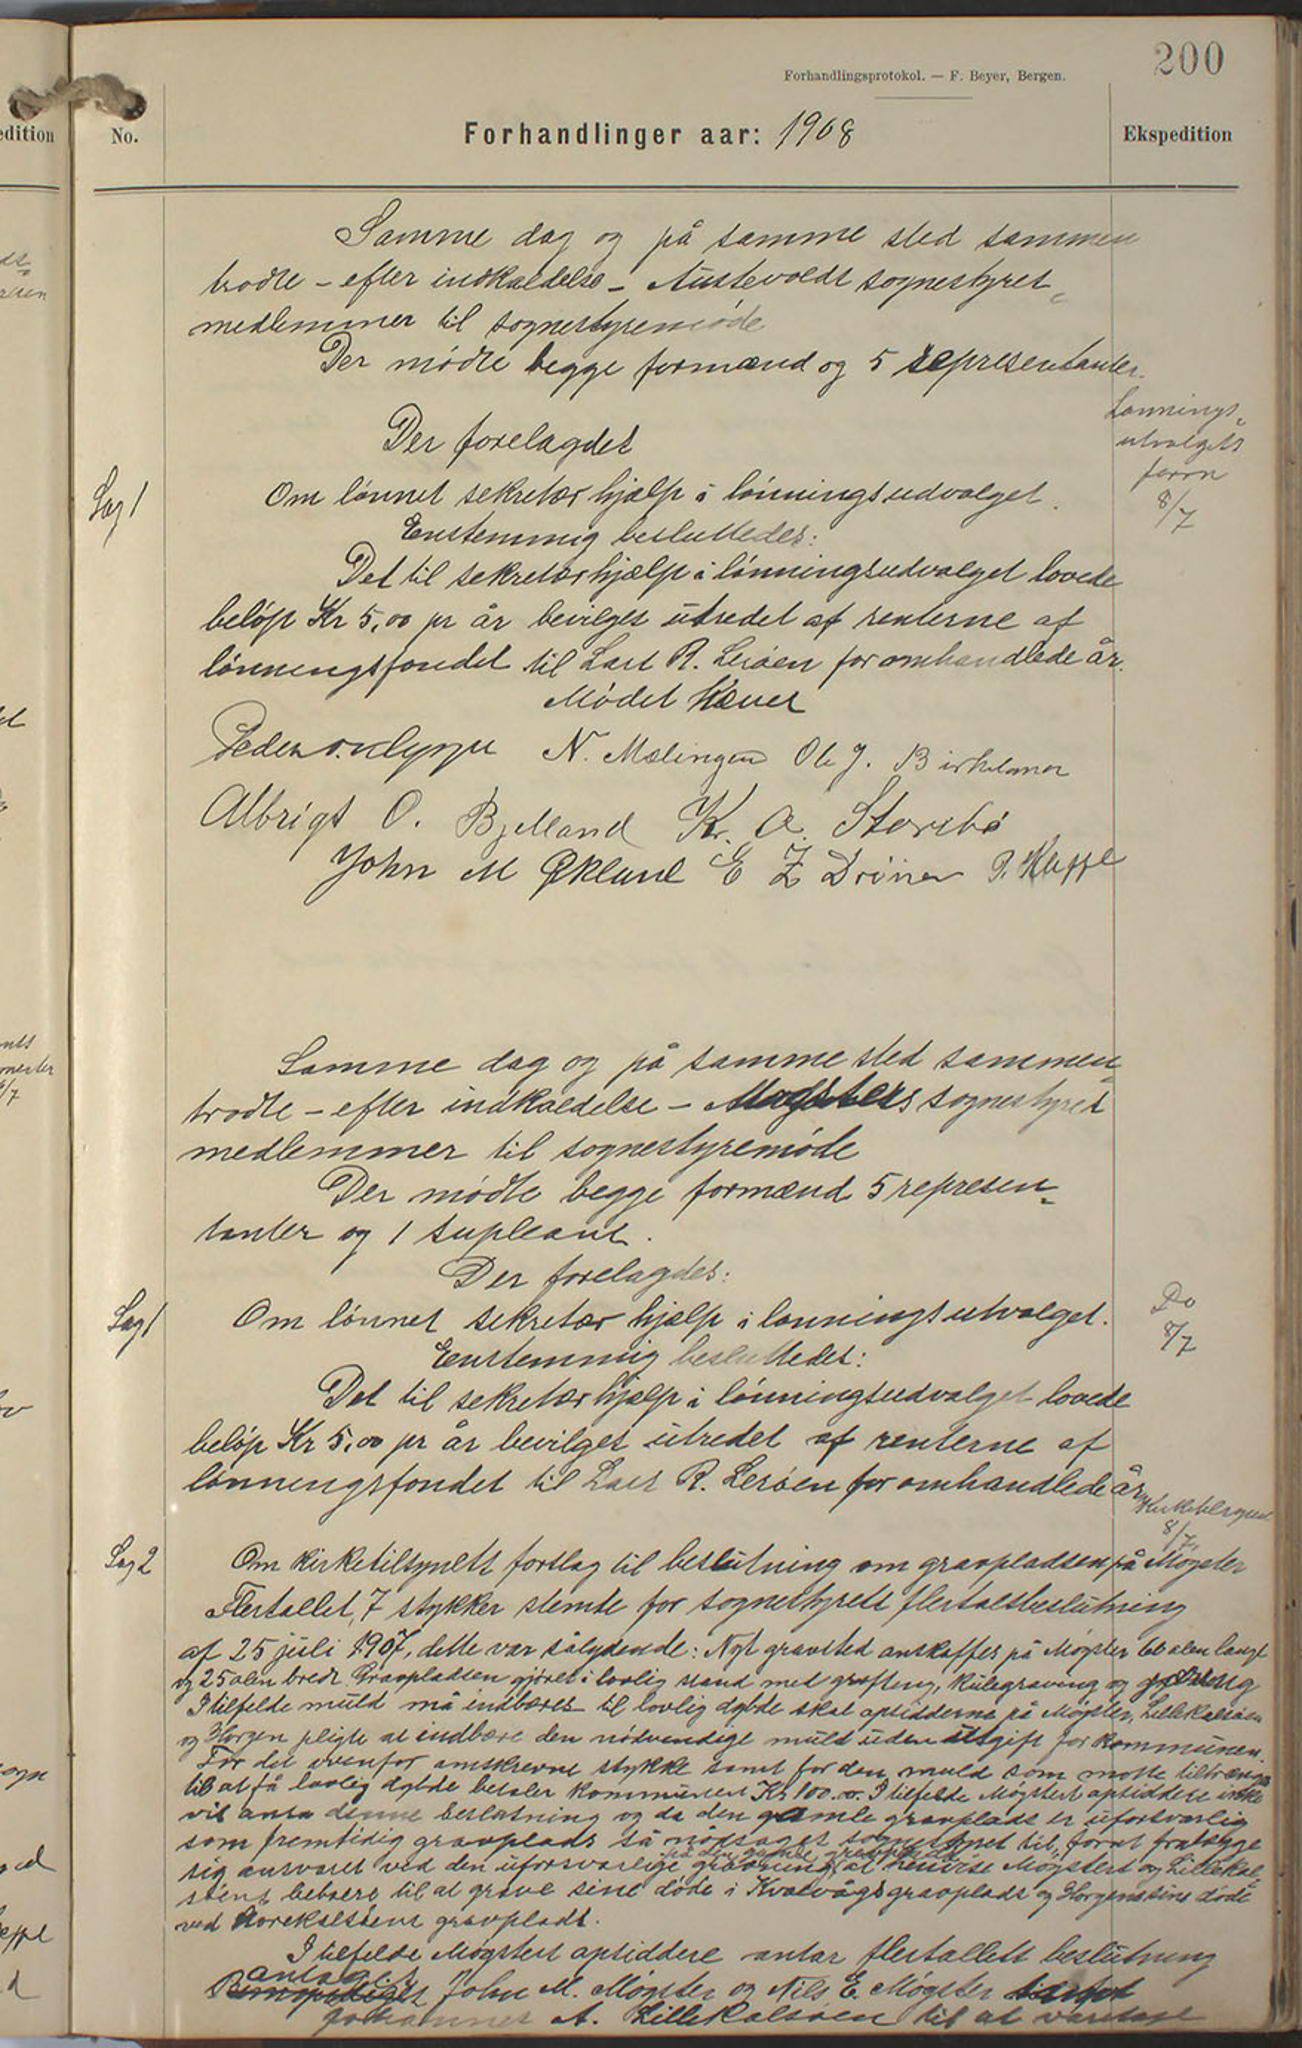 200
Forhandlingsprotokol. — F. Beyer, Bergen.
edition
No.
Forhandlinger aar: 1908
Ekspedition
Samme dag og på samme sted sammen
trådte – efter indkaldelse – Austevolds sognestyres
medlemmer til sognestyremøde
Der mødte begge formænd og 5 representanter.
Lønnings-
utvalgets
form
8/7
Der forelagdes
Sag 1
Om lønnet sekretær hjælp i lønningsudvalget.
Enstemmig besluttedes:
Det til sekretærhjælp i lønningsudvalget lovede
beløp Kr 5,00 pr år bevilges utredet af renterne af
lønningsfondet til Lars R. Lerøen for omhandlede år.
Mødet hævet
Peder N. Mælingen Ole J. Birkeland
Albrigt O. Bjelland Kr. A. Storebø
John M Økland E Z Drønen P. Kappe
Samme dag og på samme sted sammen
trådte – efter indkaldelse – Møgsters sognestyres
medlemmer til sognestyremøde
Der mødte begge formænd 5 represen-
tanter og 1 supleant.
Der forelagdes:
Sag 1
Om lønnet sekretær hjælp i lønningsutvalget.
Do
8/7
Enstemmig besluttedes:
Det til sekretærhjælp i lønningsudvalget lovede
beløp Kr 5,00 pr år bevilges utredet af renterne af
lønningsfondet til Lars R. Lerøen for omhandlede år
8/7
Sag 2
Om kirketilsynets forslag til beslutning om gravpladsen på Møgster
Flertallet, 7 stykker stemte for sognestyrets flertalsbeslutning
af 25 juli 1907, dette var sålydende: Nyt gravsted anskaffes på Møgster 60 alen langt
og 25 alen bredt. Gravpladsen gjøres i lovlig stand med grøfting, kulegraving og
I tilfelde muld må indbæres til lovlig dybde skal opsidderne på Møgster, Lillekalsøen
og Horgen pligte at indbære den nødvendige muld uden utgift for kommunen.
For det ovenfor omskrevne stykke samt for den muld som måtte tiltrænges
til at få lovlig dybde betaler kommunen Kr 100.00. I tilfelde Møgsters opsiddere ikke
vil anta denne beslutning og da den gamle gravplads er uforsvarlig
som fremtidig gravplads så nødsages sognestyret til, forat fralægge
sig ansvaret ved den uforsvarlige gravning på den gamle gravplads at henvise Møgsters og Lillekal-
søens beboere til at grave sine døde i Kvalvågs gravplads og Horgens sine døde
ved Storekalsøens gravplads.
I tilfelde Møgsters opsiddere antar flertallets beslutning
antages
John M. Møgster og Nils E. Møgster
Johannes A. Lillekalsøen til at varetage